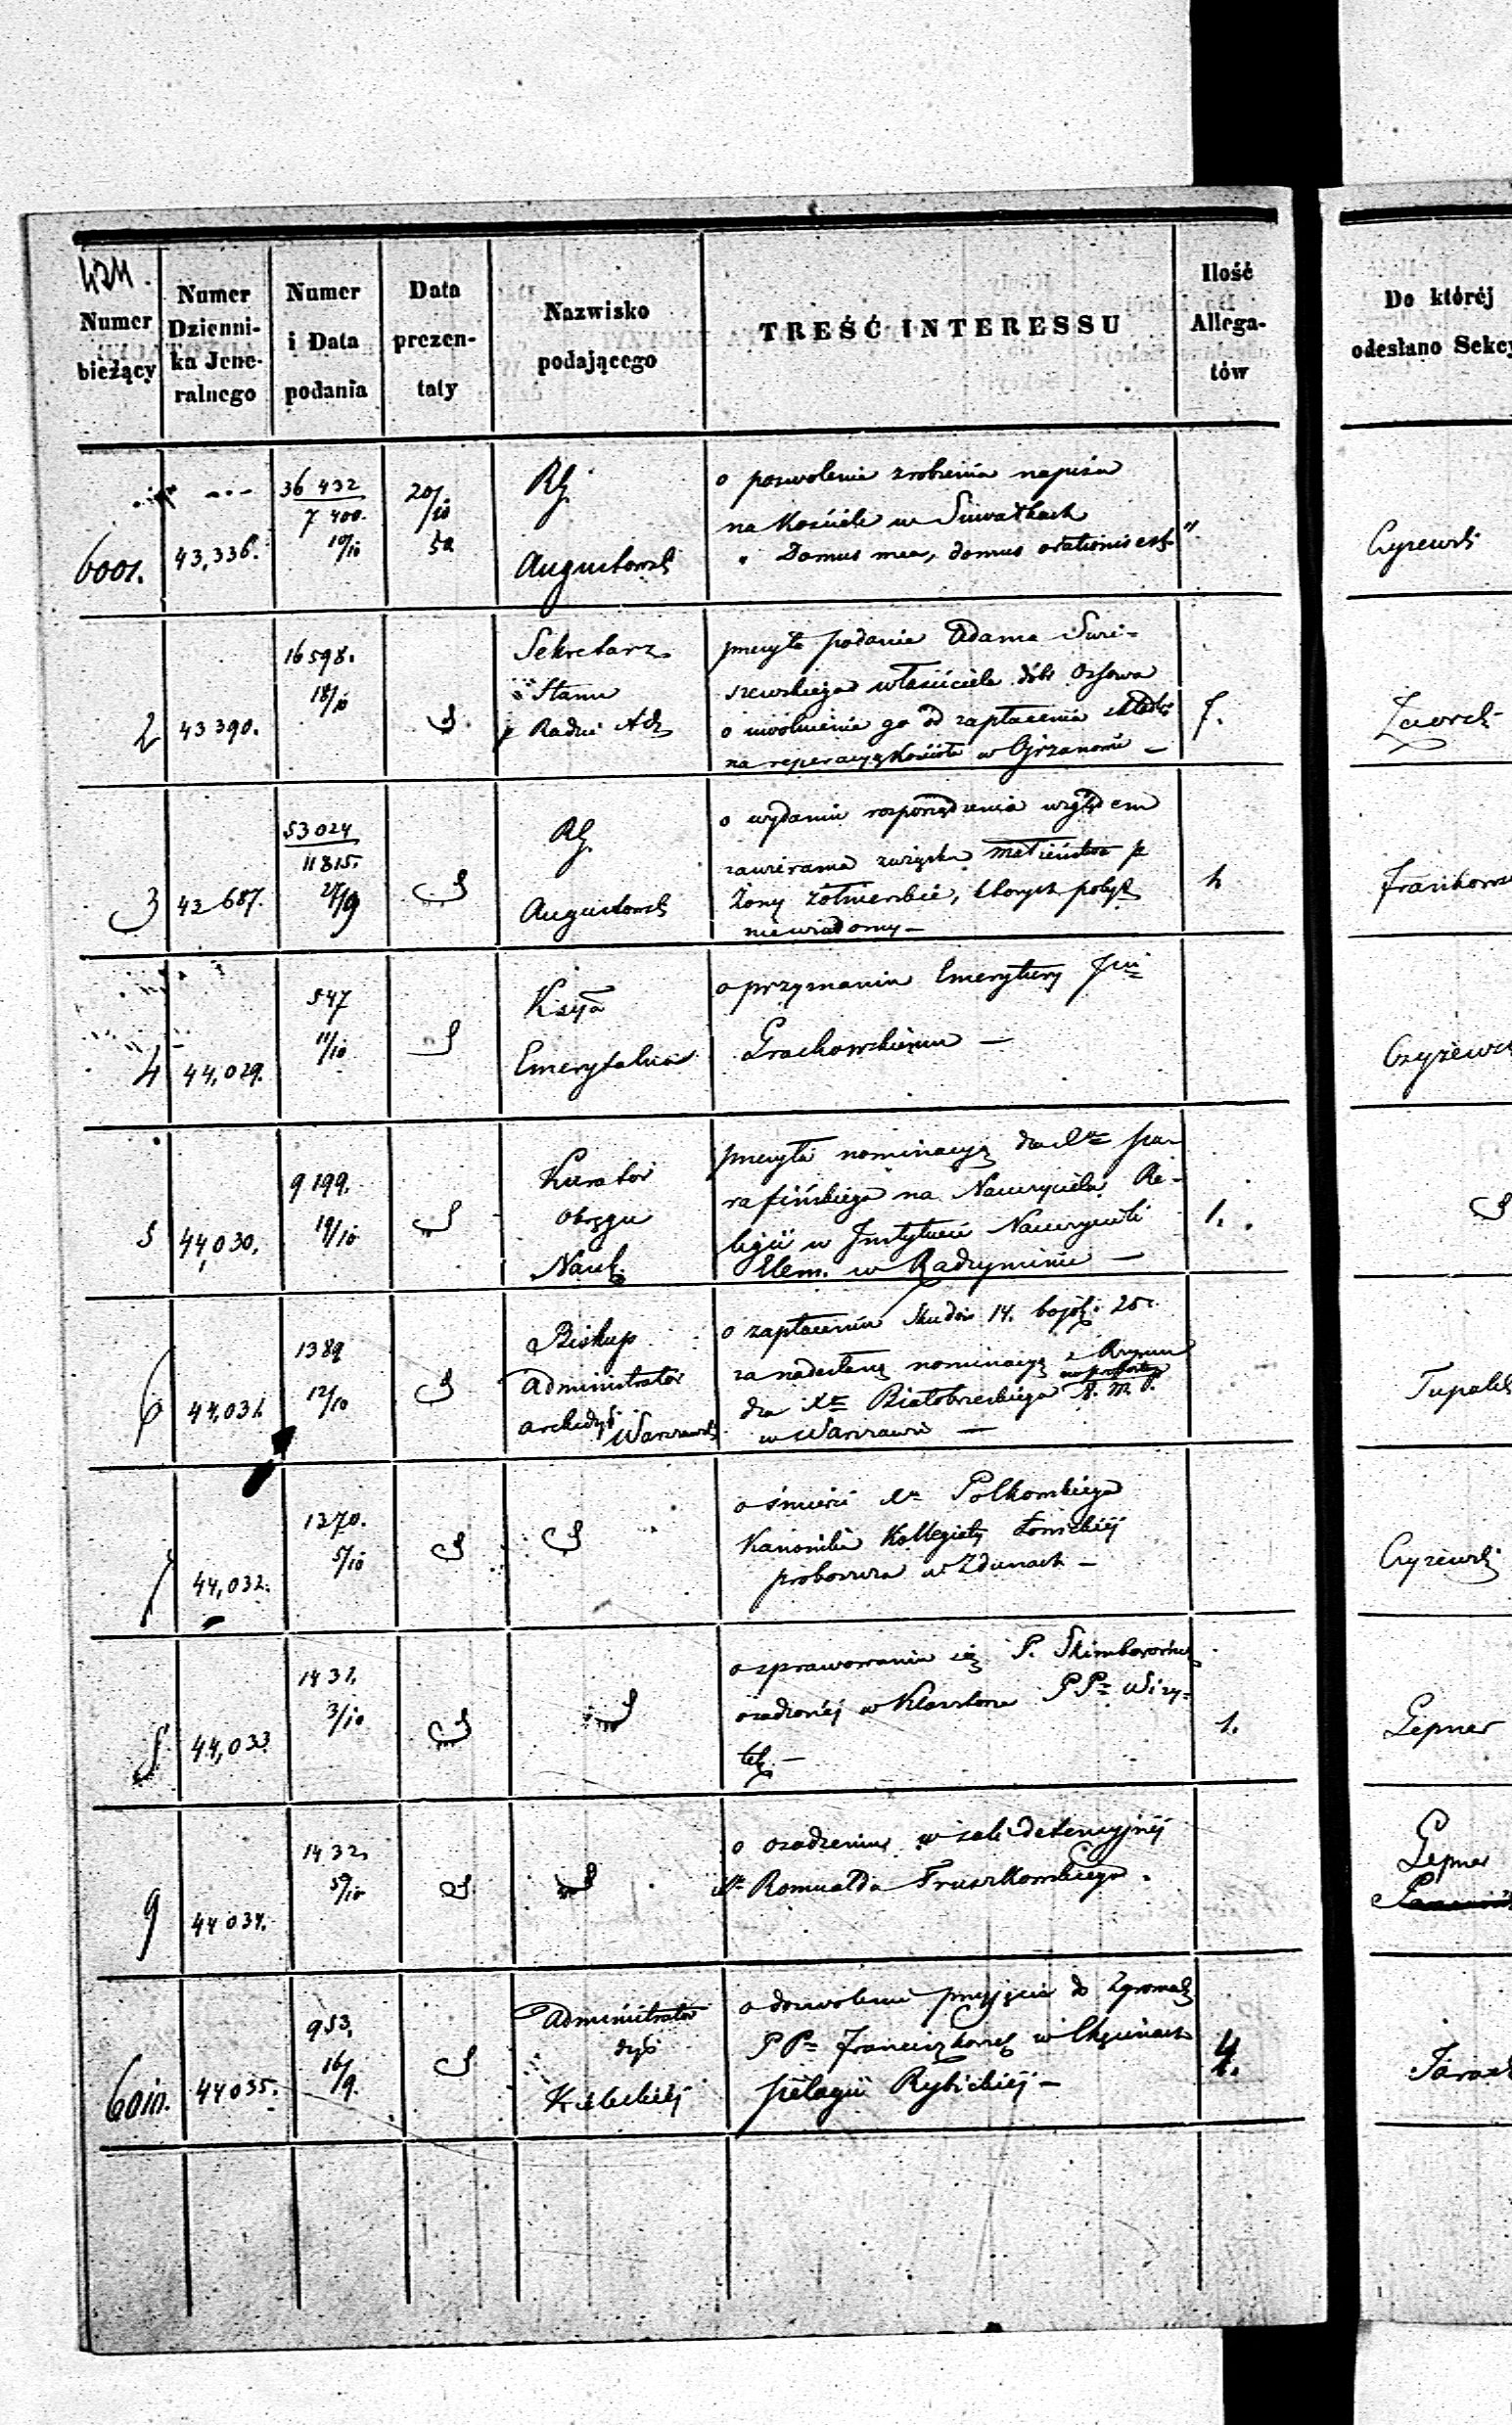 Numer bieżący
Numer Dzienni-
ka Jene-
ralnego
Numer
i Data
podania
Data
prezen-
taty
Nazwisko
podającego
TREŚĆ INTERESSU
Ilość
Allega-
tów
Do któréj
odesłano Sekcy
6001.
43,336.
36 432
7 400.
10/10
20/10
52
RG.
Augustowski
o pozwolenie zrobienia napisu
na Kościele w Suwałkach
" Domus mea, domus orationis est "
Czyżewski
2
43 390.
16 598.
18/10
Sekretarz
Stanu
przesyła podanie Adama
właściciela dóbr Ossowa
o uwolnienie go od zapłacenia składki
na reperacyą Kościoła w
3
42 687.
53 024
11 815.
27/9
RG.
Augustowski
o wydanie rozporządzenia względem
zawierania związku małżeństwa p.
żony żołnierskie, których pobyt
niewiadomy —
4
44,029.
547
11/10
Księża
Emerytalna
o przyznaniu Emerytury
Grachowskiemu —
Czyżewsk
5
44,030.
9 199.
19/10
Kurator
Okręgu
Nauk.
przesyła nominacyą dla Xa
na Nauczyciela Re-
ligii w Instytucie Nauczycieli
Elem. w Radzyminie —
1.
6
44,031.
1389
12/10
Biskup
Administrator
Archidyé Warszawski
o zapłacenie Skudów 14. bajok: 25.
za nadesłaną nominacyą z Rzymu
dla Xa Białobrzeskiego N. M. P.
w Warszawie —
7
44,032.
1270.
5/10
o śmierci Xa Polkowskiego
Kanonika Kollegiaty Łowickiéj
proboszcza w Zdunach —
Czyżewski
8
44,033
1431.
3/10
o sprawowaniu się P. Skimborowicz
osadzonéj w Klasztorze PP. Wizy-
tek. —
1.
Lepner
9
44 034.
1432.
5/10
o osadzeniu w sali detencyjnéj
Xa Romualda Truszkowskiego.
Lepner
6010.
44035.
953.
16/9.
Administrator
dyé
Kieleckiéj
o dozwolenie przyjęcia do Zgromadz
PP. Franciszkanek w Chęcinach
Pelagii Rybickiéj —